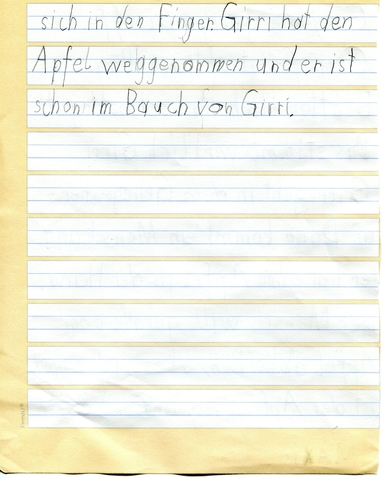 sich in den Finger. Girri hat den
Apfel weggenommen und er ist
schon im Bauch von Girri.